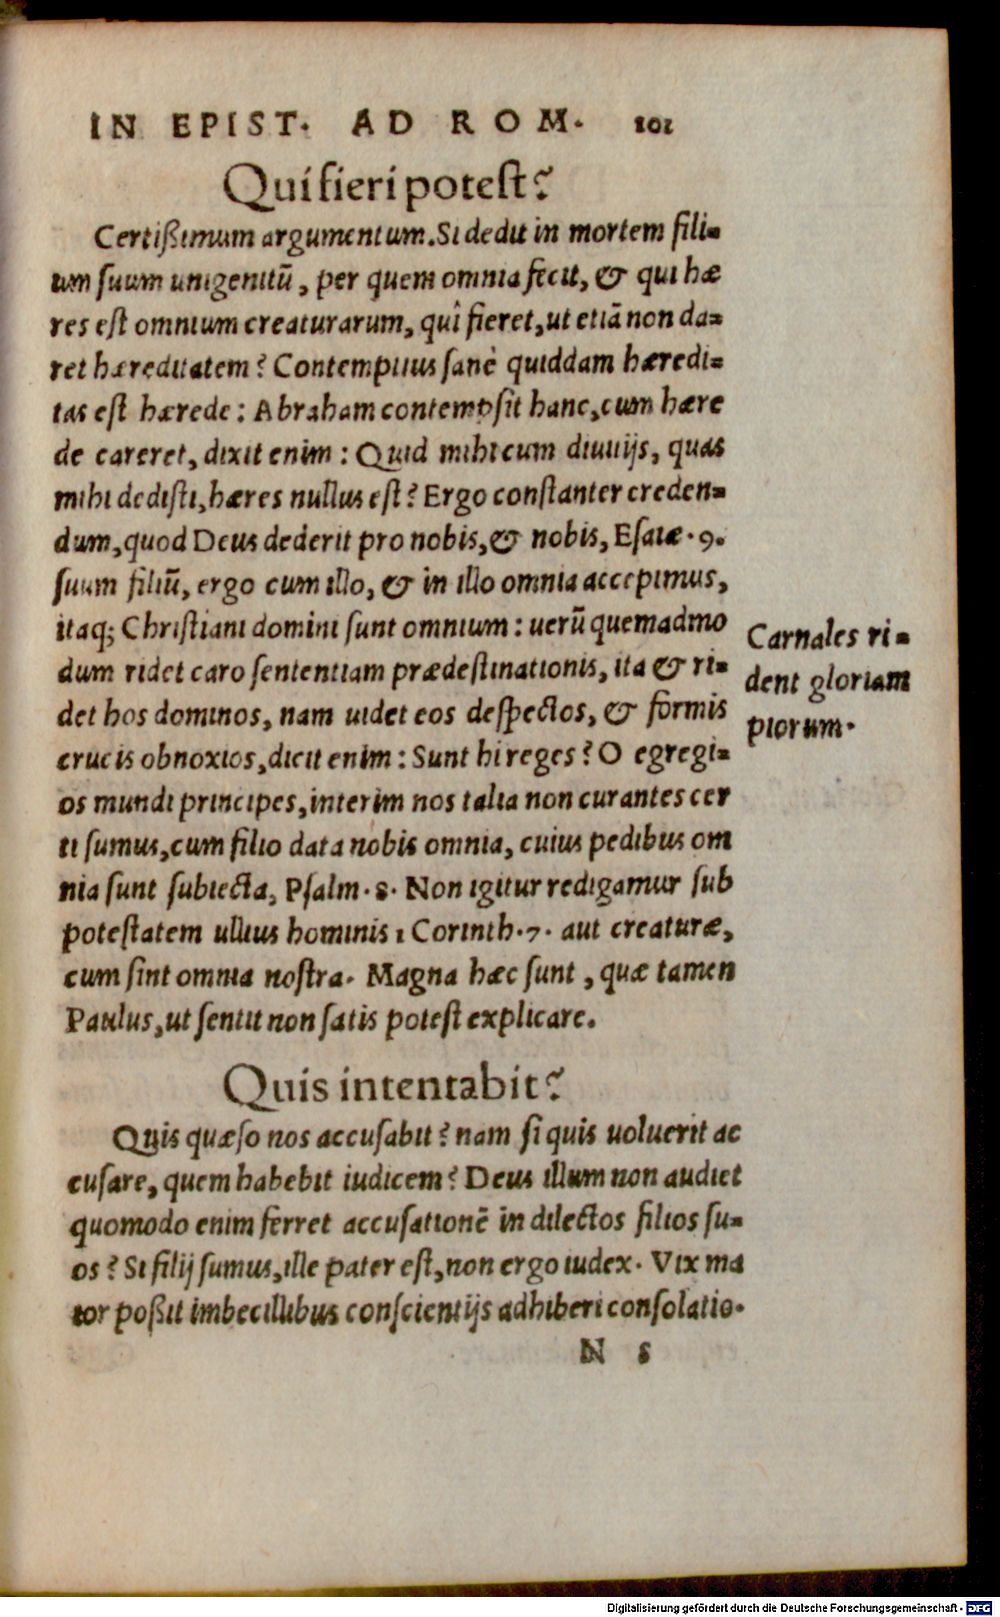 IN EPIST. AD ROM. 101
Qui fieri potest?
Certißimum argumentum. Si dedit in mortem fili=
um suum unigenitũ, per quem omnia fecit, & qui hæ
res est omnium creaturarum, quî fieret, ut etiã non da=
ret hæreditatem? Contemptius sanè quiddam hæredi=
tas est hærede: Abraham contempsit hanc, cum hære
de careret, dixit enim: Quid mihi cum diuitijs, quas
mihi dedisti, hæres nullus est? Ergo constanter creden=
dum, quod Deus dederit pro nobis, & nobis, Esaiæ. 9.
suum filiũ, ergo cum illo, & in illo omnia accepimus,
itaq; Christiani domini sunt omnium: uerũ quemadmo
dum ridet caro sententiam prædestinationis, ita & ri=
det hos dominos, nam uidet eos despectos, & formis
crucis obnoxios, dicit enim: Sunt hi reges? O egregi=
os mundi principes, interim nos talia non curantes cer
ti sumus, cum filio data nobis omnia, cuius pedibus om
nia sunt subiecta, Psalm. 8. Non igitur redigamur sub
potestatem ullius hominis 1 Corinth. 7. aut creaturæ,
cum sint omnia nostra. Magna hæc sunt, quæ tamen
Paulus, ut sentit non satis potest explicare.
Carnales ri=
dent gloriam
piorum.
Quis intentabit?
Quis quæso nos accusabit? nam si quis uoluerit ac
cusare, quem habebit iudicem? Deus illum non audiet
quomodo enim ferret accusationẽ in dilectos filios su=
os? Si filij sumus, ille pater est, non ergo iudex. Vix ma
ior poßit imbecillibus conscientijs adhiberi consolatio.
N 5
Digitalisierung gefördert durch die Deutsche Forschungsgemeinschaft - DFG